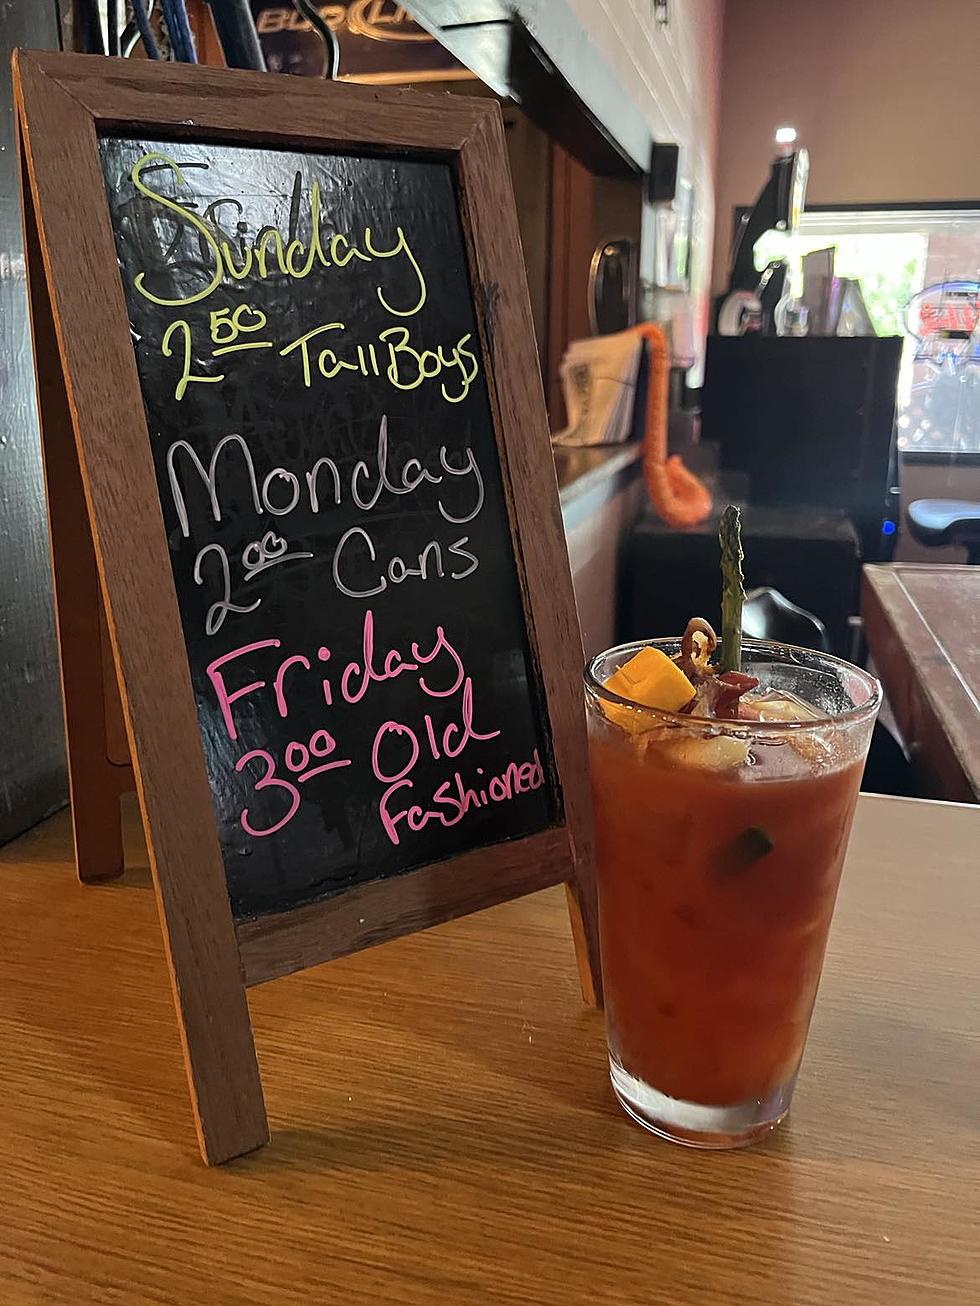 BUD LI
Sunday
2 50 Tall Boys
Monday
2 00 Cans
Friday
3 00 Old
Fashioned